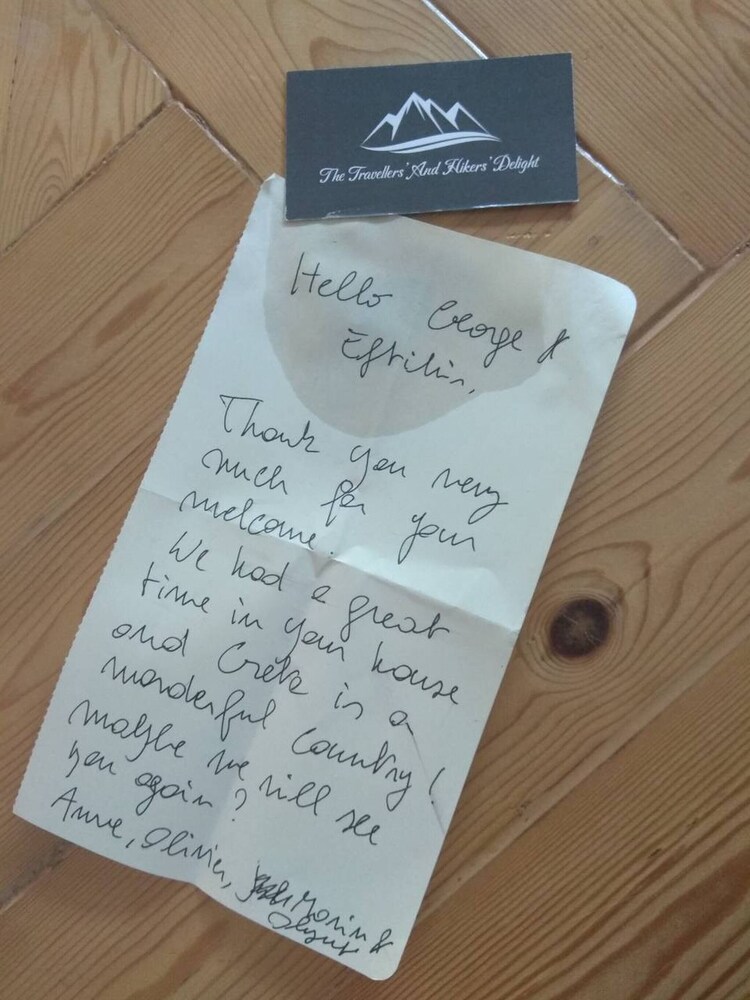 The Travellers' And Hikers' Delight
Hello George &
Thank you very
much for your
welcome.
We had a great
time in your house
and Crète is a
wonderful country!
maybe we will see
you again?
Anne, Olivier,